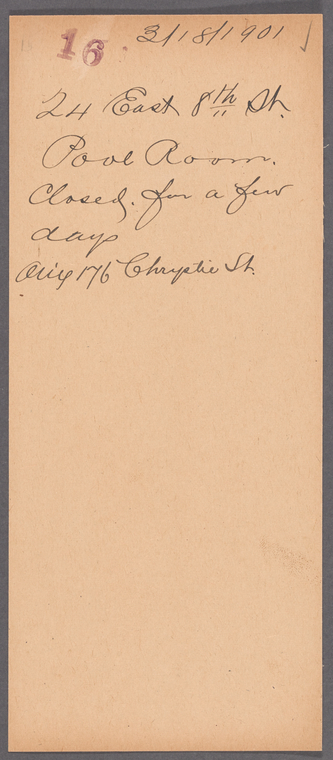 16. 3/18/1901
24 East 8th St.
Pool Room.
Closed. for a few
days
Orig 176 Chrystie St.